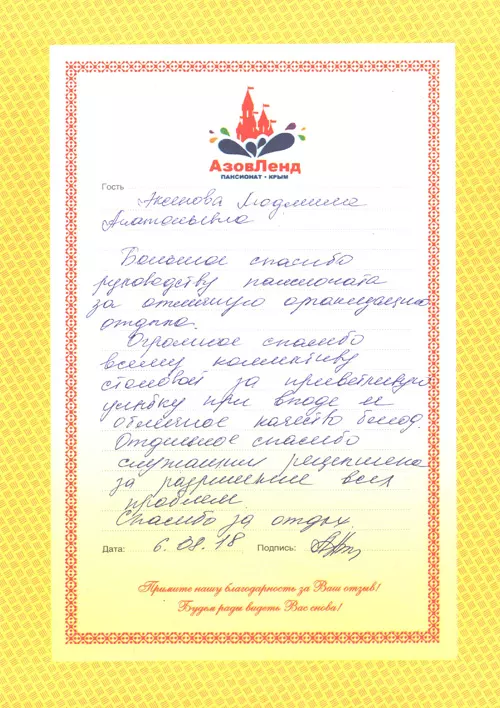 АзовЛенд
ПАНСИОНАТ • КРЫМ
Гость Аксенова Людмила
Анатольевна
Большое спасибо
руководству пансионата
за отличную организацию
отдыха.
Огромное спасибо
всему коллективу
столовой за приветливую
улыбку при входе и
отличное качество блюд.
Отдельное спасибо
служащим рецепшена
за разрешение всех
проблем
Спасибо за отдых.
Дата: 6.08.18 Подпись:
Примите нашу благодарность за Ваш отзыв!
Будем рады видеть Вас снова!